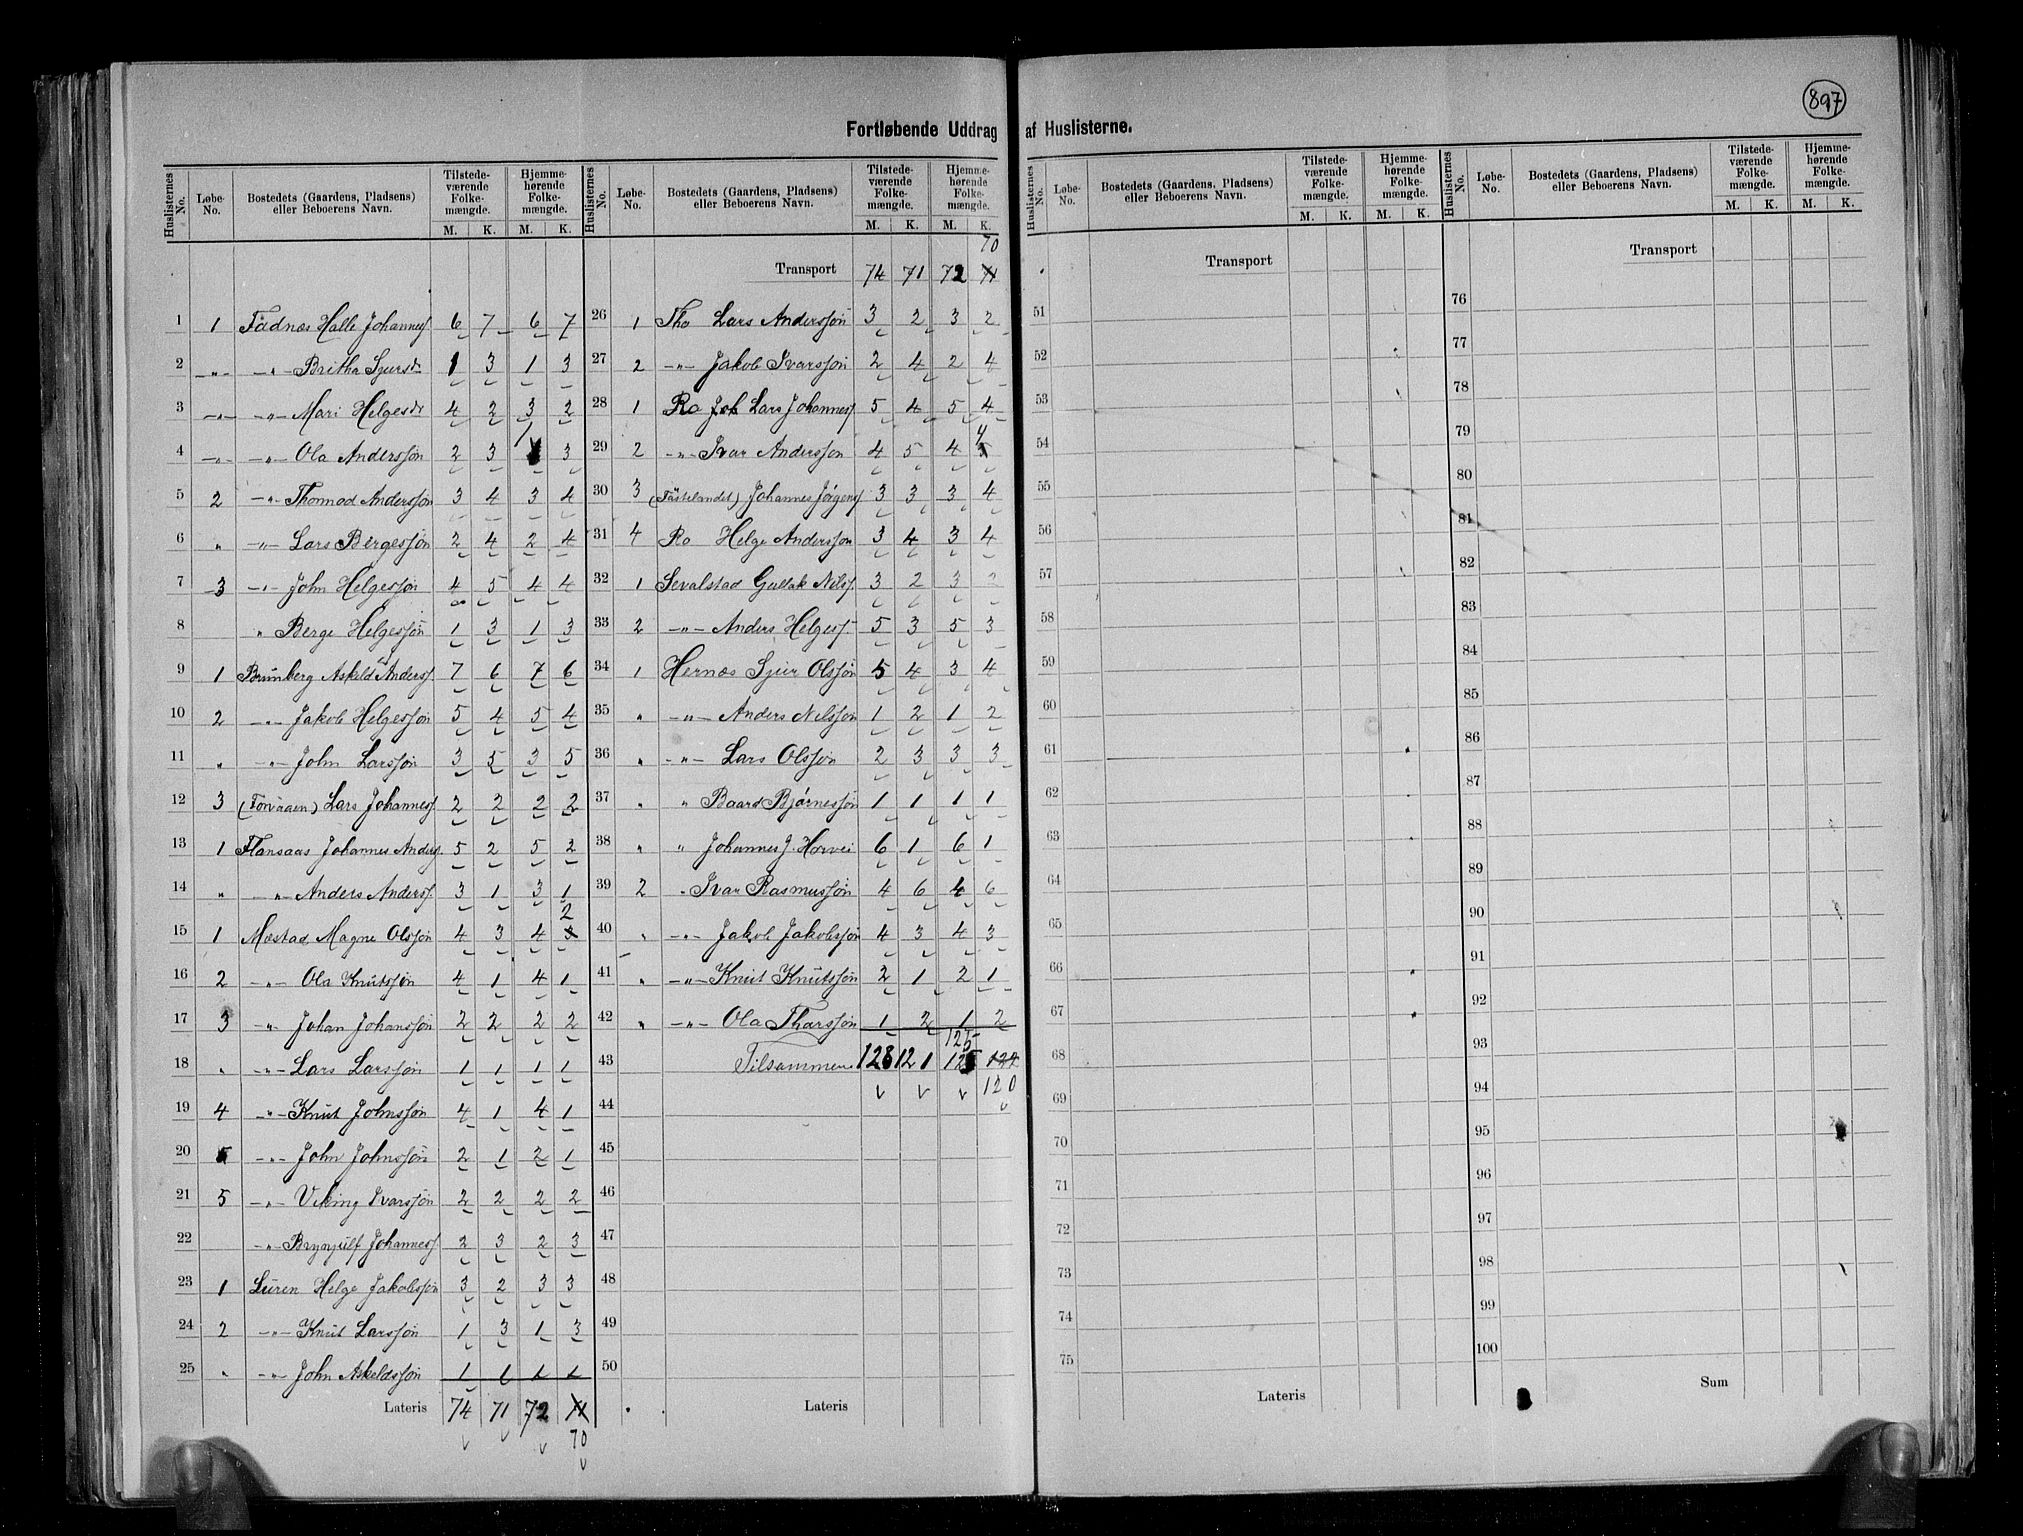 897
Fortløbende Uddrag af Huslisterne.
Huslisternes No. Løbe-No. Bostedets (Gaardens, Pladsens) eller Beboerens Navn. Tilstedeværende Folkemængde. M. K. Hjemmehørende Folkemængde. M. K.
1 1 Fadnæs Halle Johannesf. 6 7 6 7
2 -"- -"- Britha Sjursdr 1 3 1 3
3 -"- -"- Mari Helgesdr 4 2 3 2
4 -"- -"- Ola Andersson 2 3 1 3
5 2 -"- Thormod Andersson 3 4 3 4
6 " -"- Lars Bergesson 2 4 2 4
7 3 -"- John Helgesson 4 5 4 4
8 " Berge Helgesson 1 3 1 3
9 1 Brunberg Askeld Andersf. 7 6 7 6
10 2 -"- Jakob Helgesson 5 4 5 4
11 " -"- John Larsson 3 5 3 5
12 3 (Forvaaen) Lars Johannesf. 2 2 2 2
13 1 Flansaas Johannes Andersf. 5 2 5 2
14 " -"- Anders Andersf. 3 1 3 1
2
15 1 Mæstad Magne Olsson 4 3 4 3
16 2 -"- Ola Knutsson 4 1 4 1
17 3 -"- Johan Johansson 2 2 2 2
18 " -"- Lars Larsson 1 1 1 1
19 4 -"- Knut Johnsson 4 1 4 1
20 5 -"- John Johnsson 2 1 2 1
21 5 -"- Viking Ivarsson 2 2 2 2
22 -"- Brynjulf Johannesf. 2 3 2 3
23 1 Luren Helge Jakobsson 3 2 3 3
24 2 -"- Knut Larsson 1 3 1 3
25 " -"- John Askeldsson 1 1 1 1
Lateris 74 71 72 71
70
Huslisternes No. Løbe-No. Bostedets (Gaardens, Pladsens) eller Beboerens Navn. Tilstedeværende Folkemængde. M. K. Hjemmehørende Folkemængde. M. K.
70
Transport 74 71 72 71
26 1 Tho Lars Andersson 3 2 3 2
27 2 -"- Jakob Ivarsson 2 4 2 4
28 1 Ro Joh Lars Johannesf. 5 4 5 4
4
29 2 -"- Ivar Andersson 4 5 4 5
30 3 (Fästelandet) Johannes Jörgensf. 3 3 3 4
31 4 Ro Helge Andersson 3 4 3 4
32 1 Sevalstad Gullak Nilsf. 3 2 3 2
33 2 -"- Anders Helgesf. 5 3 5 3
34 1 Hernæs Sjur Olsson 5 4 3 4
35 " -"- Anders Nilsson 1 2 1 2
36 " -"- Lars Olsson 2 3 3 3
37 " " Baard Bjørnesson 1 1 1 1
38 " " Johannes J. Horvei 6 1 6 1
39 2 " Ivar Rasmusson 4 6 4 6
40 " -"- Jakob Jakobsson 4 3 4 3
41 " -"- Knut Knutsson 2 1 2 1
42 " -"- Ola Tharsson 1 2 1 2
125
43 Tilsammen 128 121 125 122
120
44
45
46
47
48
49
50
Lateris
Huslisternes No. Løbe-No. Bostedets (Gaardens, Pladsens) eller Beboerens Navn. Tilstedeværende Folkemængde. M. K. Hjemmehørende Folkemængde. M. K.
Transport
51
52
53
54
55
56
57
58
59
60
61
62
63
64
65
66
67
68
69
70
71
72
73
74
75
Lateris
Huslisternes No. Løbe-No. Bostedets (Gaardens, Pladsens) eller Beboerens Navn. Tilstedeværende Folkemængde. M. K. Hjemmehørende Folkemængde. M. K.
Transport
76
77
78
79
80
81
82
83
84
85
86
87
88
89
90
91
92
93
94
95
96
97
98
99
100
Sum